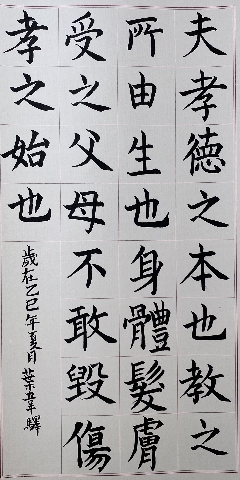 夫孝德之本也教之
所由生也身體髮膚
受之父母不敢毀傷
孝之始也
歲在乙巳年夏月葉韋驛